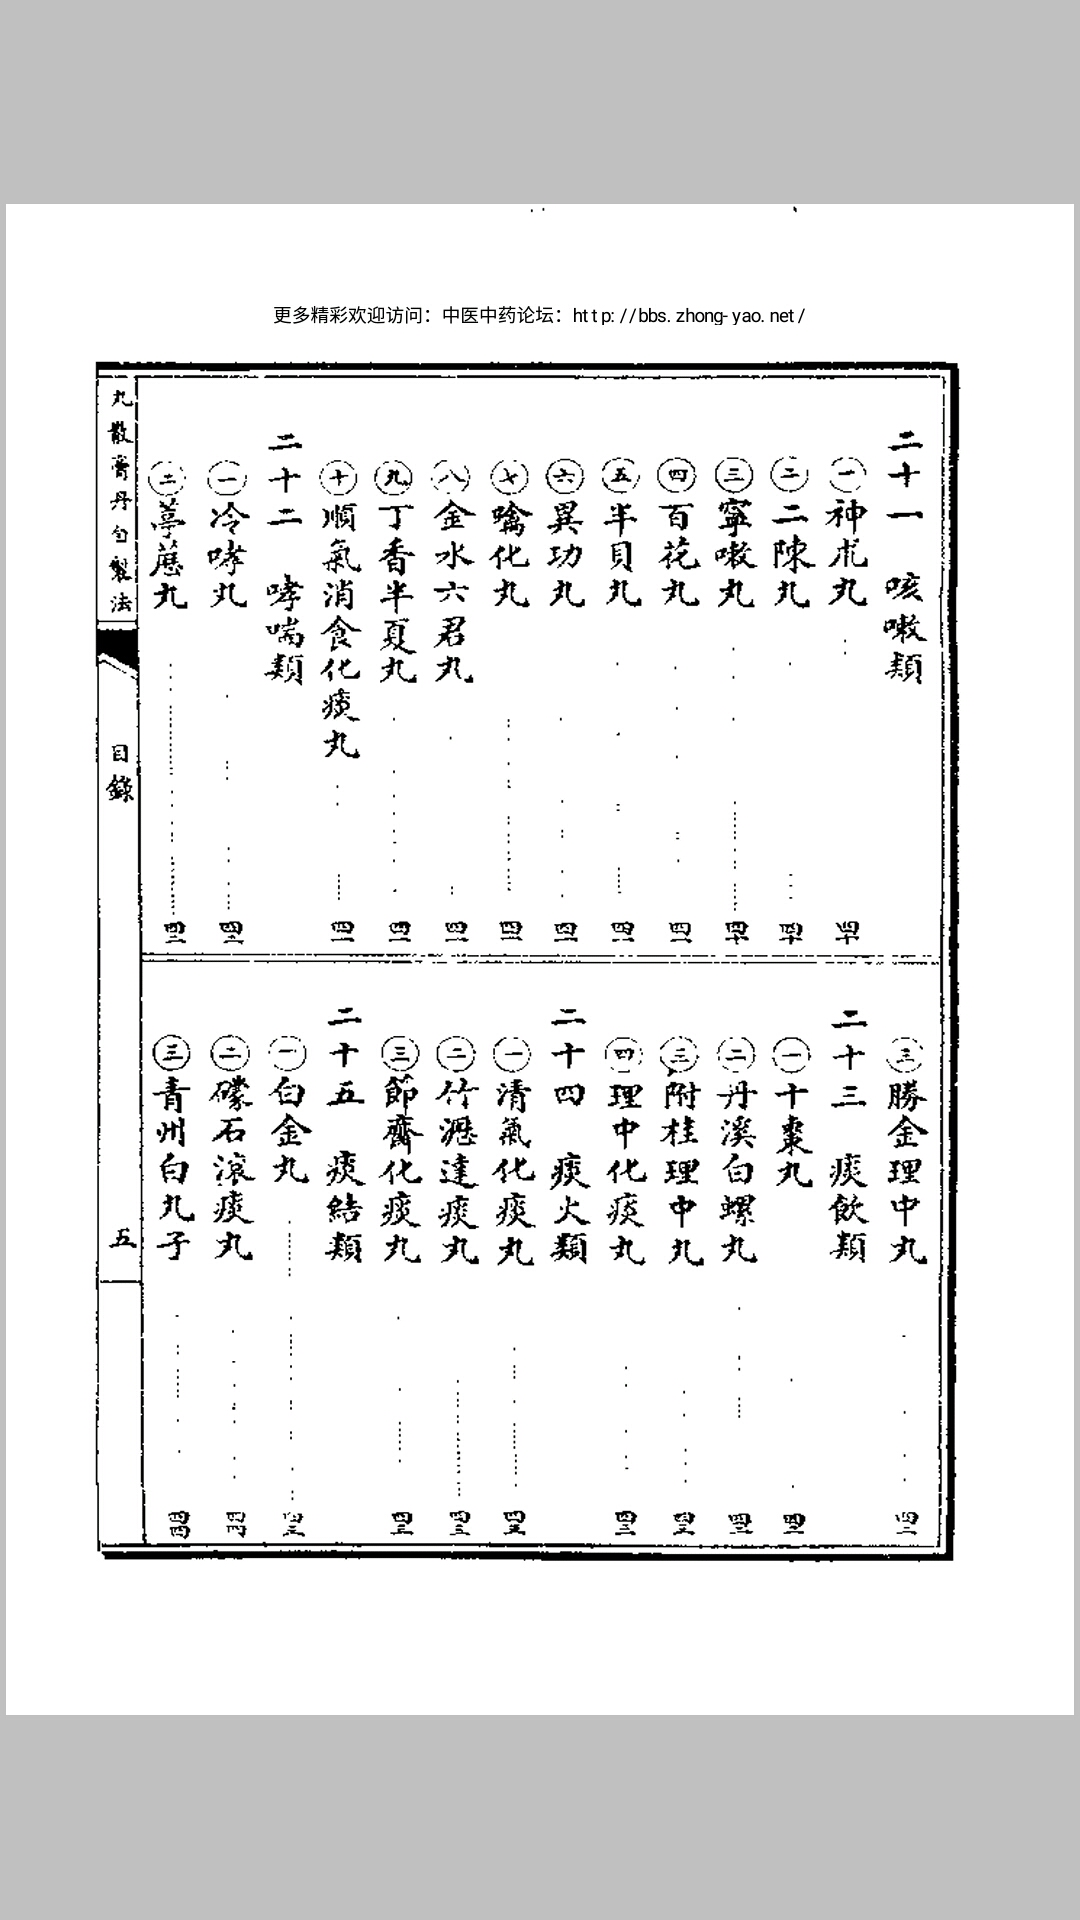 更多精彩欢迎访问：中医中药论坛：http://bbs.zhong-yao.net/
二十一 咳嗽類
㊀神朮丸 四十
㊁二陳丸 四十
㊂寧嗽丸 四十
㊃百花丸 四一
㊄半貝丸 四一
㊅異功丸 四一
㊆噙化丸 四一
㊇金水六君丸 四一
㊈丁香半夏丸 四一
㊉順氣消食化痰丸 四一
二十二 哮喘類
㊀冷哮丸 四二
㊁葶藶丸 四二
㊂勝金理中丸 四二
二十三 痰飲類
㊀十棗丸 四二
㊁丹溪白螺丸 四三
㊂附桂理中丸 四三
㊃理中化痰丸 四三
二十四 痰火類
㊀清氣化痰丸 四三
㊁竹瀝達痰丸 四三
㊂節齋化痰丸 四三
二十五 痰結類
㊀白金丸 四三
㊁礞石滾痰丸 四四
㊂青州白丸子 四四
丸散膏丹自製法
目錄
五